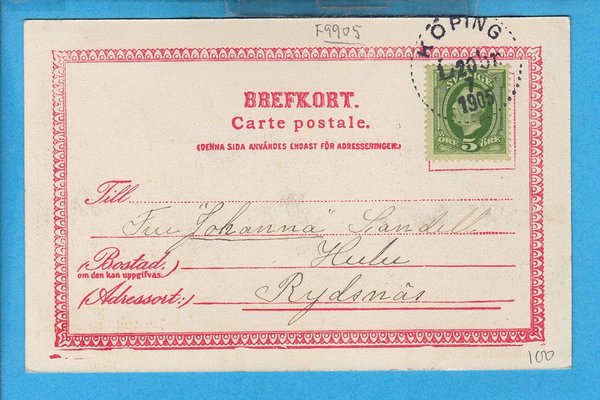 F9905
KÖPING
1905
SVERIGE
ÖRE 5 ÖRE
BREFKORT.
Carte postale.
(DENNA SIDA ANVÄNDES ENDAST FÖR ADRESSERINGEN.)
Till
Fru "Johanna" Sandell
(Bostad:)
om den kan uppgifvas.
(Adressort:)
Rydsnäs
100